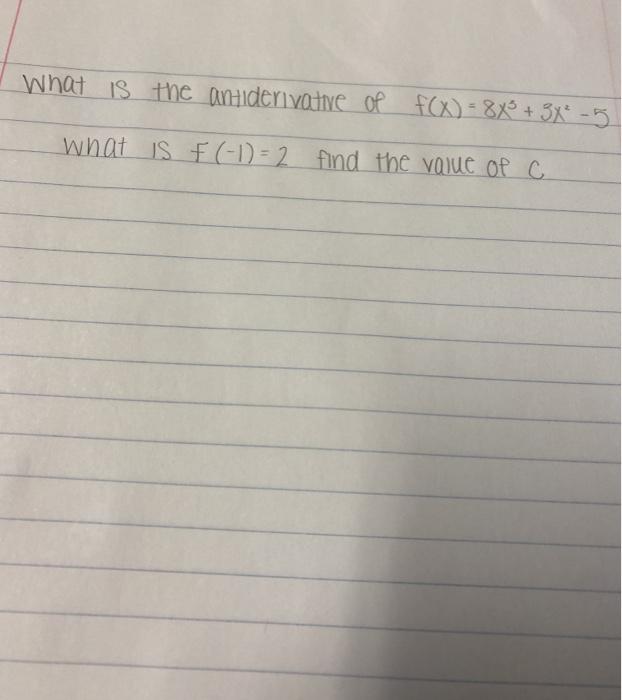 What is the antiderivative of f(x) = 8x³ + 3x² - 5
What is F(-1) = 2 find the value of C